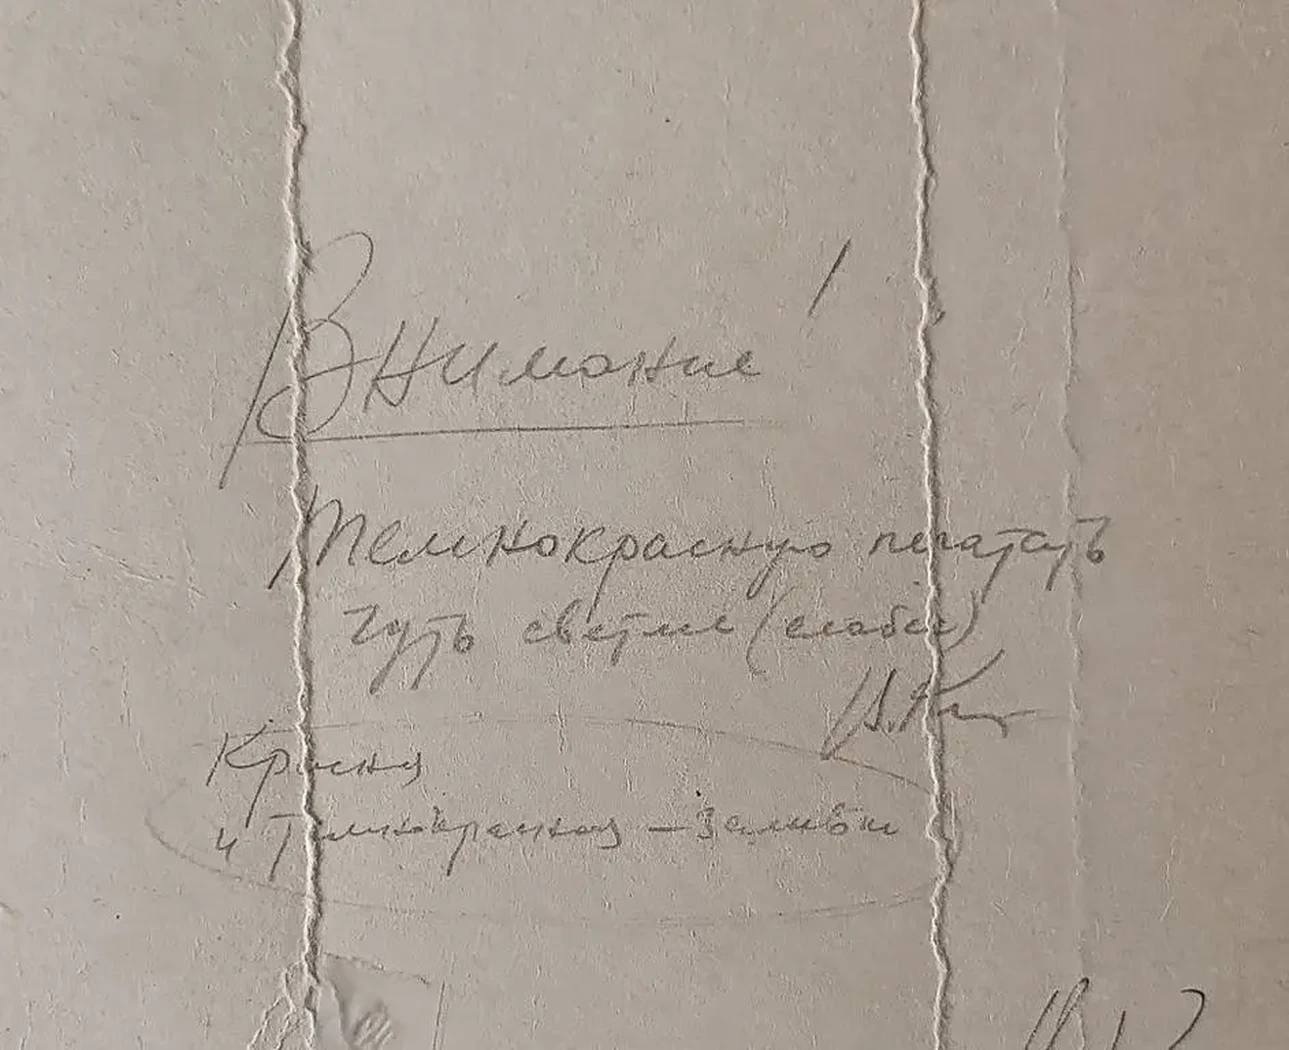 Внимание!
Темнокрасную печатать
чуть светлее (слабее)
Красная
и Темнокрасная — Заливки